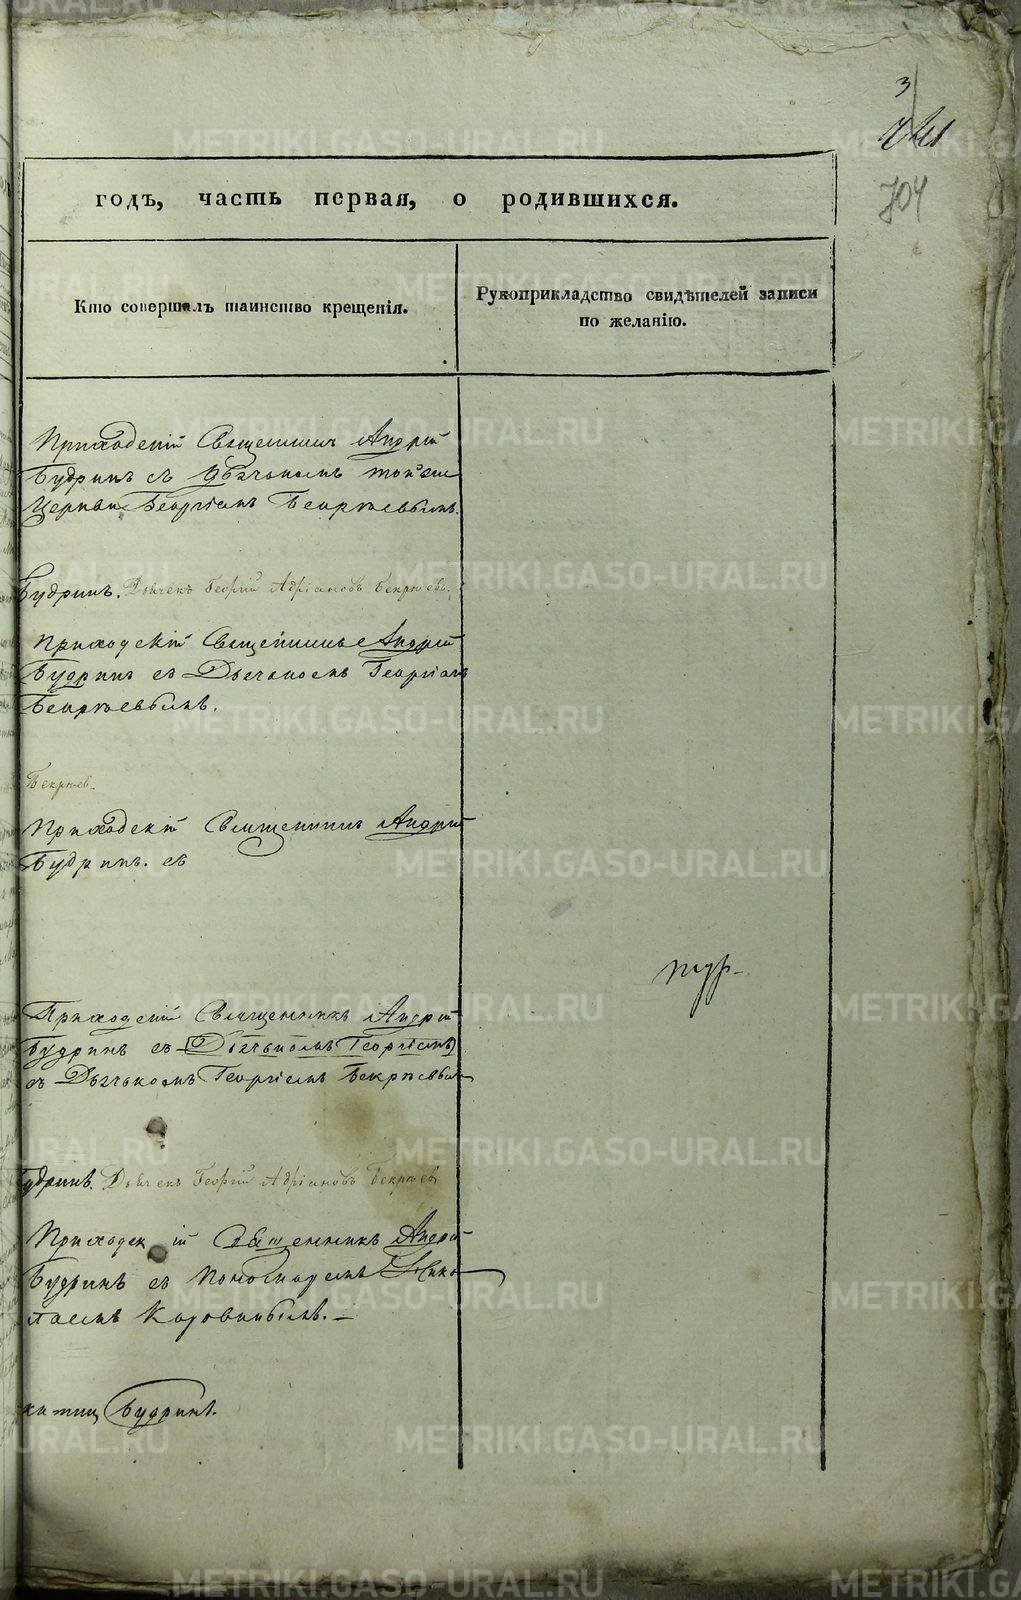 3
704
годъ, часть первая, о родившихся.
Кто совершалъ таинство крещенія.
Рукоприкладство свидѣтелей записи
по желанію.
Приходскій Священникъ Андрей
Будринъ съ Дьячкомъ той же
Церкви Георгіемъ Бекряевымъ.
Будринъ. Дьячекъ Георгій Адріановъ Бекряевъ.
Приходскій Священникъ Андрей
Будринъ съ Дьячкомъ Георгіемъ
Бекряевымъ.
Бекряев.
Приходскій Священникъ Андрей
Будринъ. съ
Приходскій Священникъ Андрей
Будринъ съ (Дьячкомъ Георгіемъ)
съ Дьячкомъ Георгіемъ Бекряевым
Будринъ. Дьячекъ Георгій Адріановъ Бекряев
Приходскій Священникъ Андрей
Будринъ съ Пономаремъ Нико
лаемъ Коровинымъ.
Будринъ.
METRIKI.GASO-URAL.RU